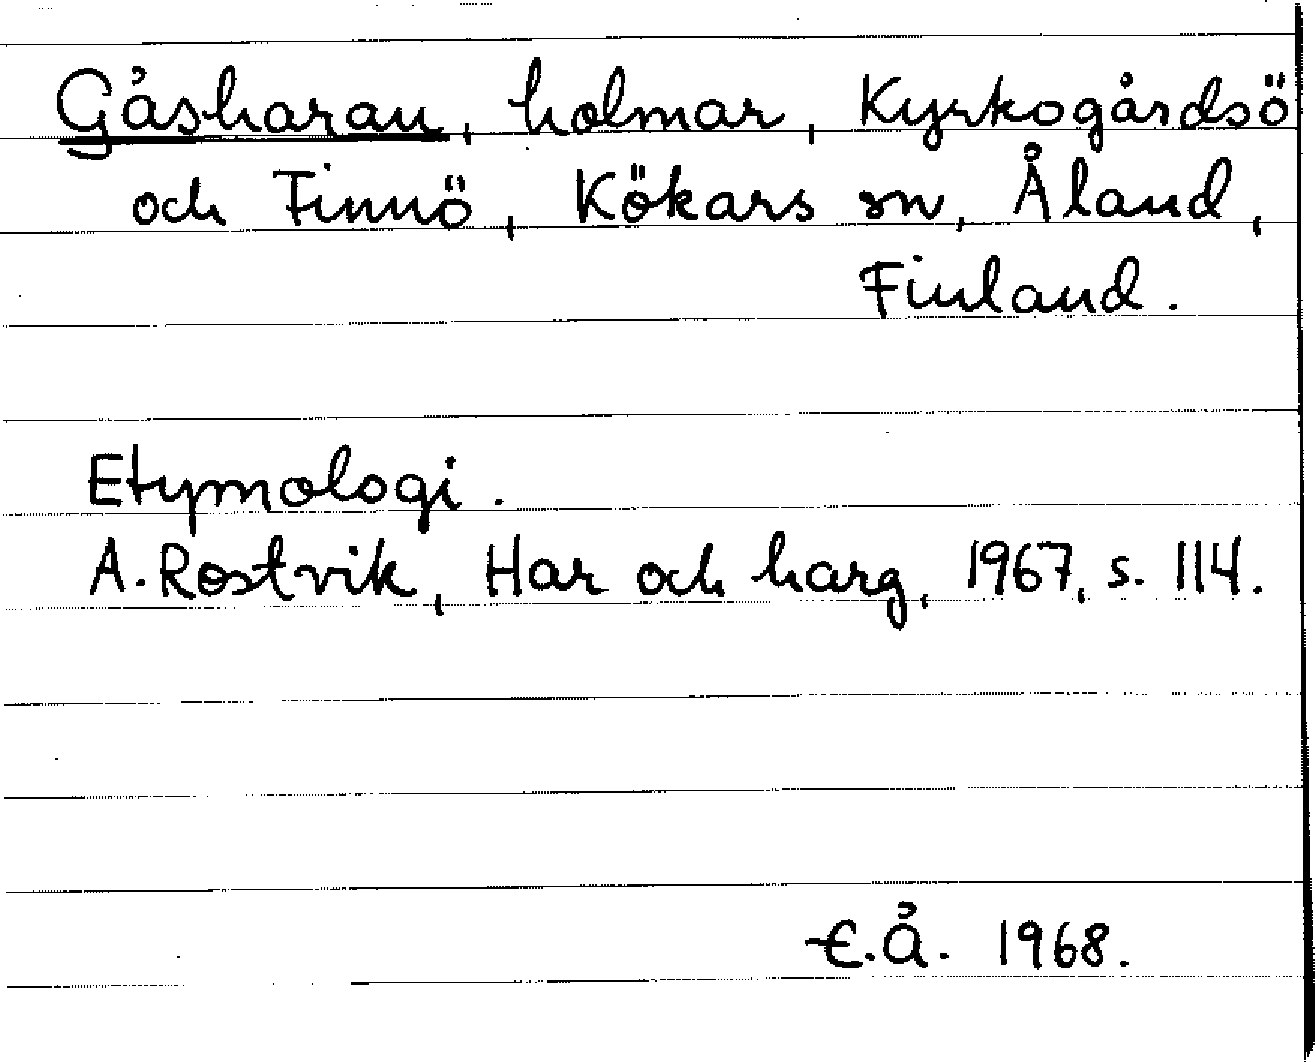 Gåsharan, holmar, Kyrkogårdsö
och Finnö, Kökars sn, Åland,
Finland.
Etymologi.
A. Rostvik, Har och harg, 1967, s. 114.
E.Å. 1968.